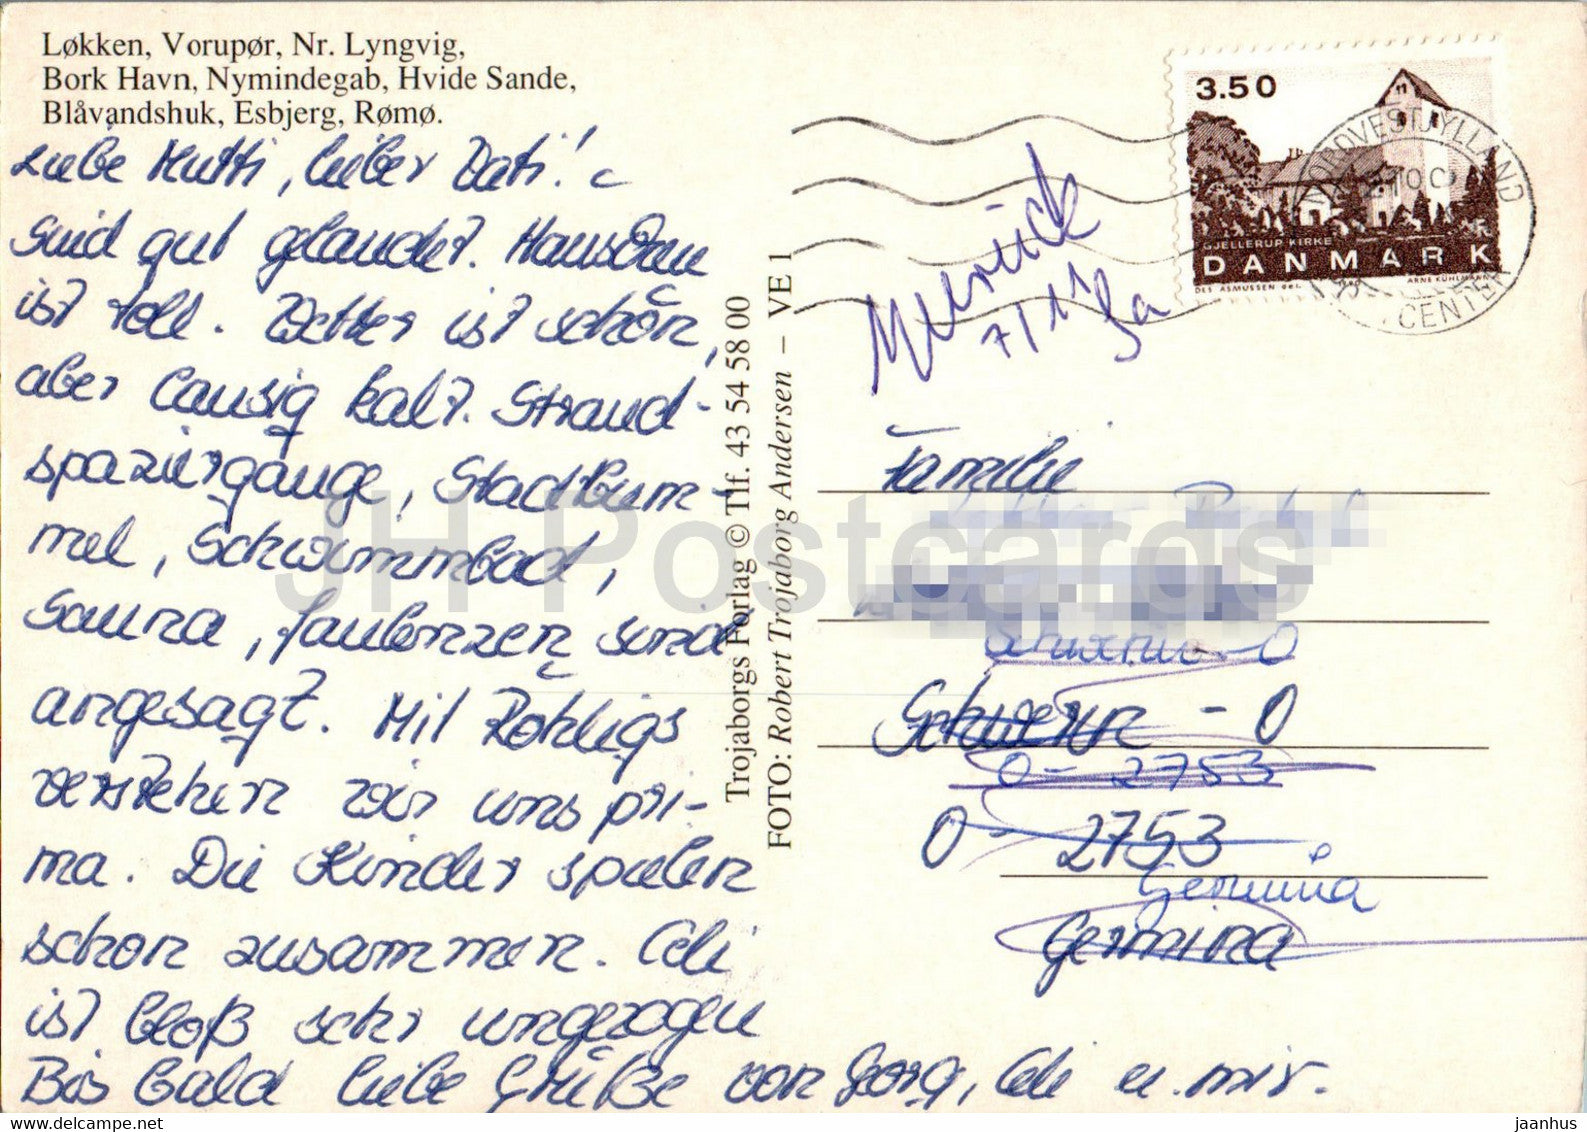 Løkken, Vorupør, Nr. Lyngvig,
Bork Havn, Nymindegab, Hvide Sande,
Blåvandshuk, Esbjerg, Rømø.
Liebe Mutti, lieber Vati!
Sind gut gelandet. Haus
ist toll. Wetter ist schön,
aber lausig kalt. Strand-
spaziergänge, Stadtbum-
mel, Schwimmbad,
Sauna, faulenzen sind
angesagt. Mit Rohligs
verstehen wir uns pri-
ma. Die Kinder spielen
schon zusammen. Celi
ist bloß sehr ungezogen
Bis bald liebe Grüße von Georg, Celi u. mir.
Trojaborgs Forlag © Tlf. 43 54 58 00
FOTO: Robert Trojaborg Andersen – VE 1
3.50
GJELLERUP KIRKE
DANMARK
ARNE KÜHLMANN
NORDVESTJYLLANDS
CENTER
zurück
7/11
Familie
Schwerin - O
Schwerin - O
O - 2753
O - 2753
Germina
Germina
JH Postcards
www.delcampe.net
jaanhus